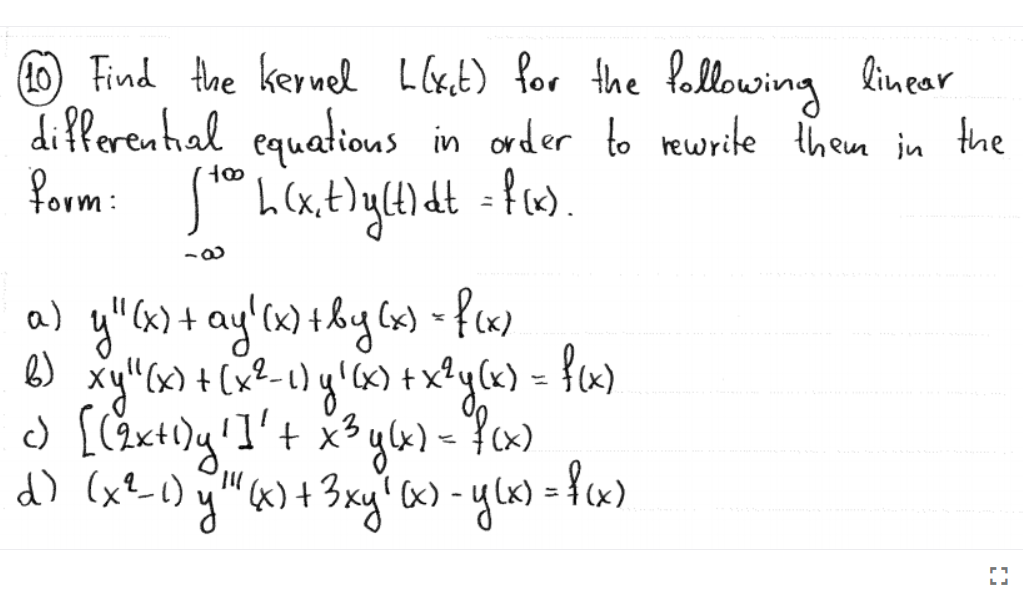 ⑩ Find the kernel L(x,t) for the following linear
differential equations in order to rewrite them in the
form: ∫_{-∞}^{+∞} L(x,t)y(t)dt = f(x).
a) y''(x) + ay'(x) + by(x) = f(x)
b) xy''(x) + (x²-1)y'(x) + x²y(x) = f(x)
c) [(2x+1)y']' + x³y(x) = f(x)
d) (x²-1)y'''(x) + 3xy'(x) - y(x) = f(x)